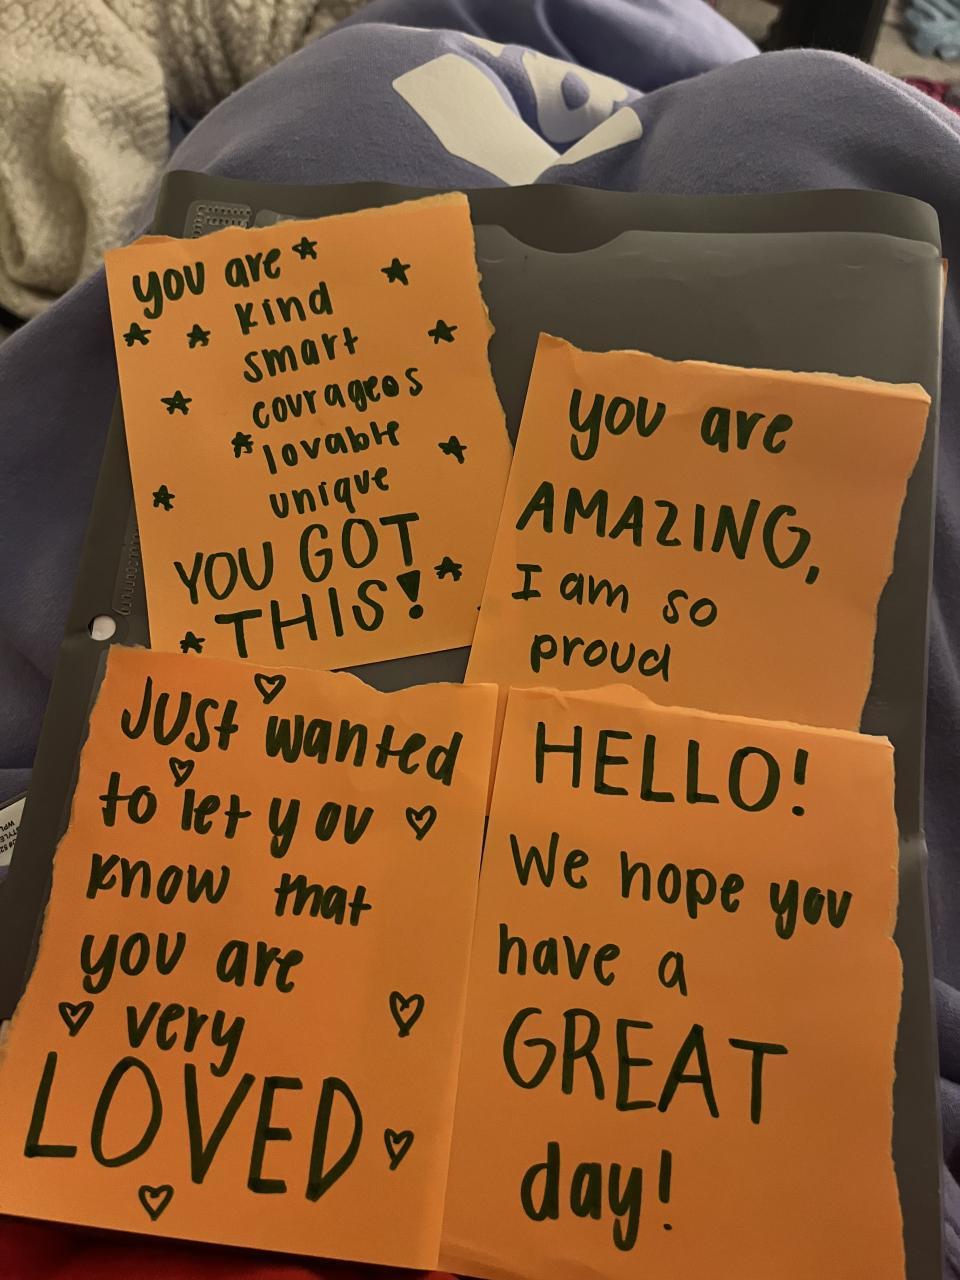 you are
kind
smart
courageos
lovable
unique
YOU GOT
THIS!
you are
AMAZING,
I am so
proud
Just wanted
to let you
know that
you are
very
LOVED
HELLO!
We hope you
have a
GREAT
day!